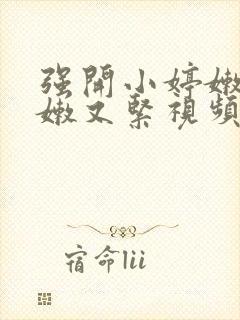 强開小婷嫩
嫩又緊視頻
宿命lii